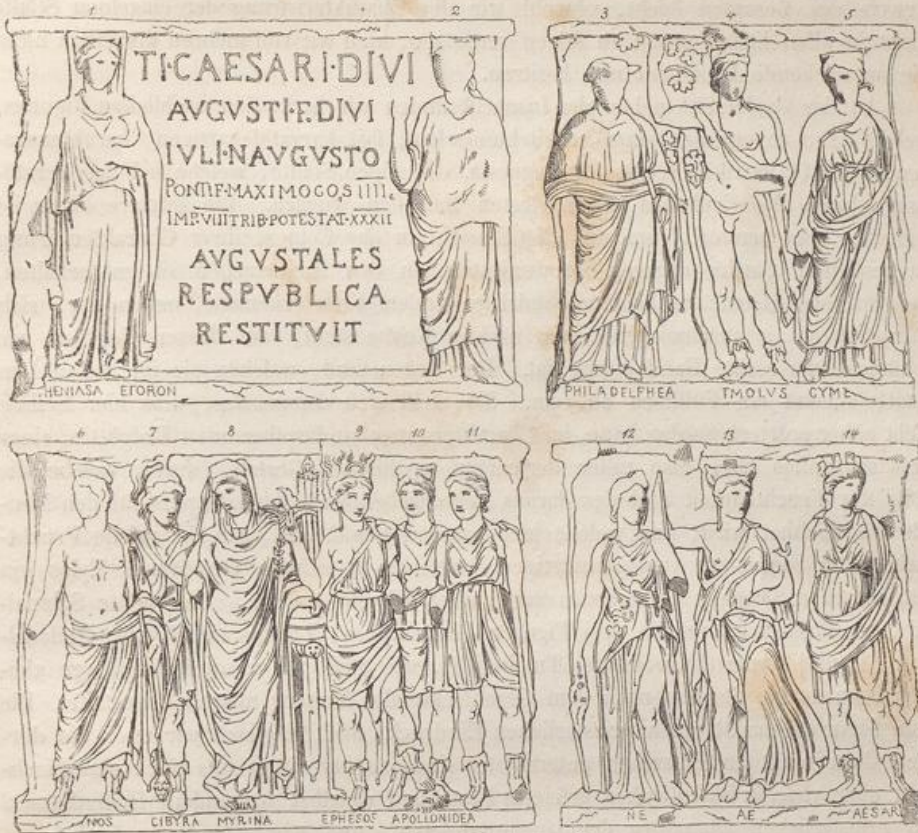 2
TI·CAESARI·DIVI
AVGVSTI·F·DIVI
IVLI·N·AVGVSTO
PONTIF·MAXIMO·COS IIII
IMP·VIII TRIB·POTESTAT·XXXII
AVGVSTALES
RESPVBLICA
RESTITVIT
HENIA SA ETORON
3 4 5
PHILADELPHEA TMOLVS CYME
6 7 8 9 10 11
NOS CIBYRA MYRINA EPHESOS APOLLONIDEA
12 13 14
NE AE AESAR